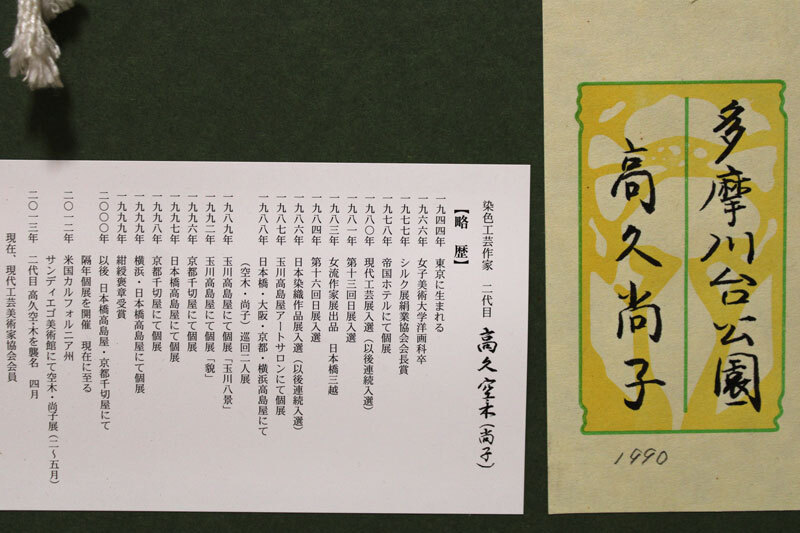 多摩川台公園
高久尚子
1990
染色工芸作家 二代目 高久空木(尚子)
【略 歴】
一九四四年 東京に生まれる
一九六六年 女子美術大学洋画科卒
一九七七年 シルク展絹業協会会長賞
一九七八年 帝国ホテルにて個展
一九八〇年 現代工芸展入選(以後連続入選)
一九八一年 第十三回日展入選
一九八三年 女流作家展出品 日本橋三越
一九八四年 第十六回日展入選
一九八六年 日本染織作品展入選(以後連続入選)
一九八七年 玉川高島屋アートサロンにて個展
一九八八年 日本橋・大阪・京都・横浜高島屋にて
(空木・尚子)巡回二人展
一九八九年 玉川高島屋にて個展「玉川八景」
一九九二年 玉川高島屋にて個展「貌」
一九九六年 京都千切屋にて個展
一九九七年 日本橋高島屋にて個展
一九九八年 京都千切屋にて個展
一九九九年 横浜・日本橋高島屋にて個展
一九九九年 紺綬褒章受賞
二〇〇〇年 以後 日本橋高島屋・京都千切屋にて
隔年個展を開催 現在に至る
二〇一二年 米国カルフォルニア州
サンディエゴ美術館にて空木・尚子展(二〜五月)
二〇一三年 二代目 高久空・木を襲名 四月
現在、現代工芸美術家協会会員